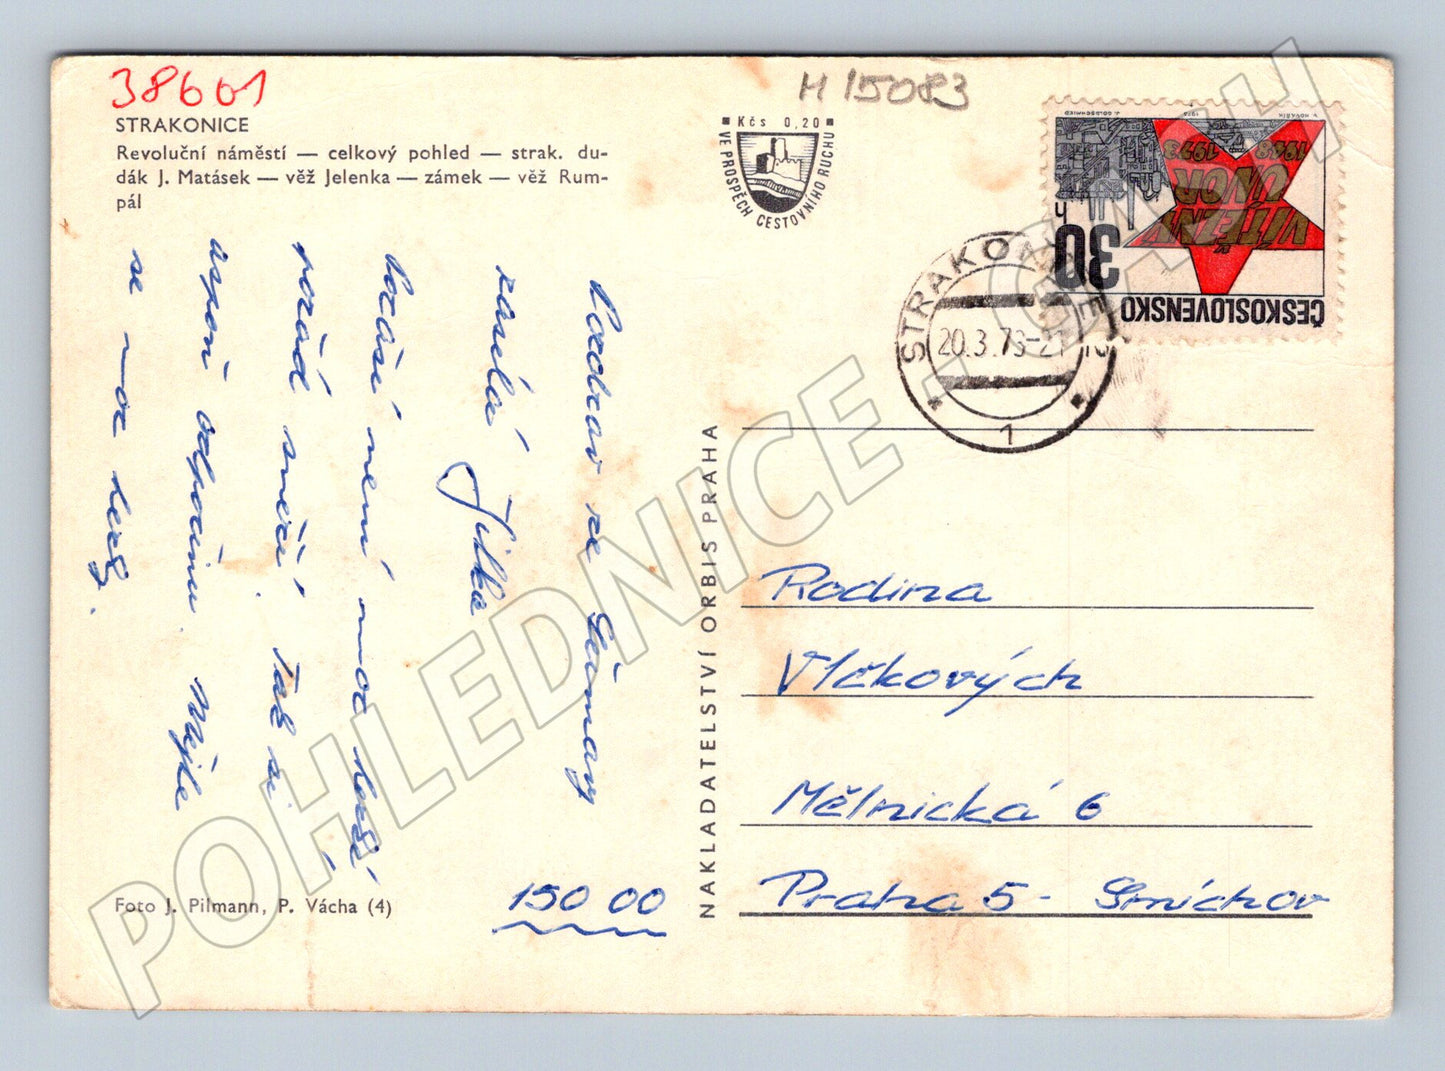 38661
H 15083
STRAKONICE
Revoluční náměstí — celkový pohled — strak. du-
dák J. Matásek — věž Jelenka — zámek — věž Rum-
pál
Kčs 0,20
VE PROSPĚCH CESTOVNÍHO RUCHU
J. GOLDSCHMIED 1973 V. KOVÁŘÍK
1948 1973
VÍTĚZNÝ
ÚNOR
30
h
ČESKOSLOVENSKO
STRAKONICE
20.3.73-21
1
Pozdrav ze Šumavy
zasílá Jitka
Počasí není moc hezké,
pořád sněží. Tak si
aspoň odpočinu. Mějte
se moc hezky.
NAKLADATELSTVÍ ORBIS PRAHA
Rodina
Vlčkových
Mělnická 6
Praha 5 - Smíchov
150 00
Foto J. Pilmann, P. Vácha (4)
POHLEDNICE - GAJH